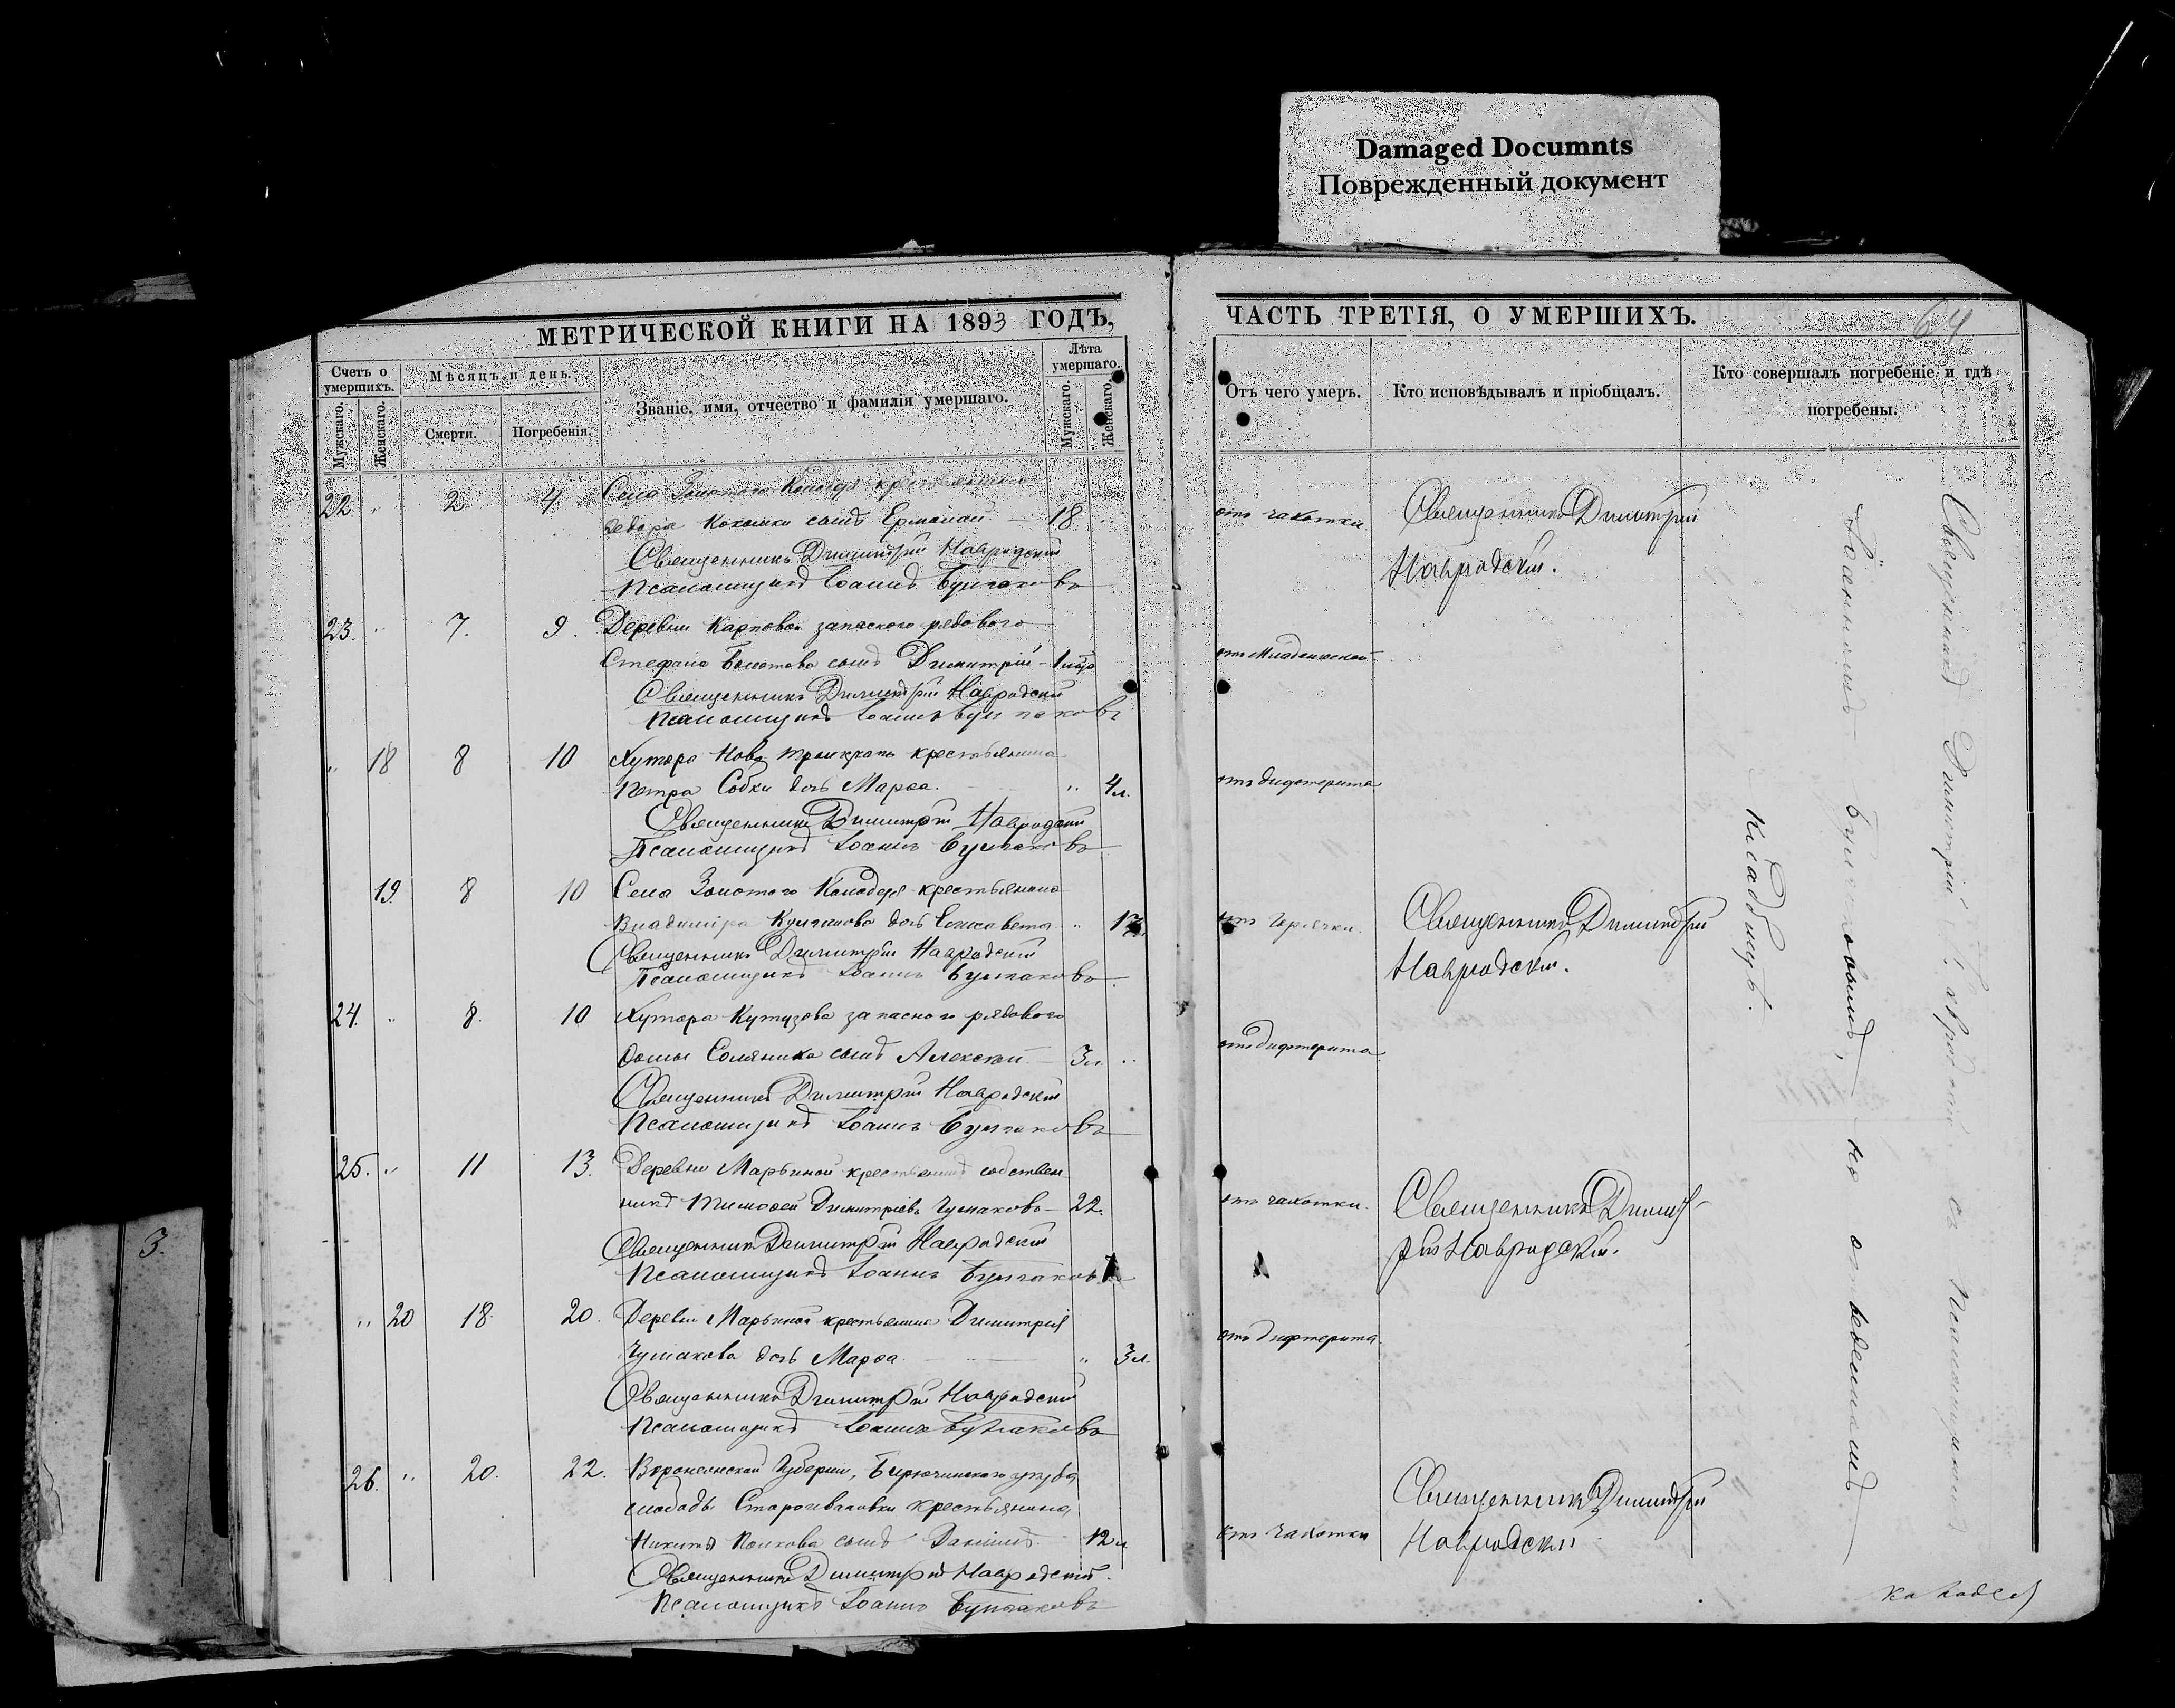 Damaged Documnts
Поврежденный документ
МЕТРИЧЕСКОЙ КНИГИ НА 1893 ГОДЪ,
Счетъ о умершихъ.
Мужскаго.
Женскаго.
Мѣсяцъ и день.
Смерти.
Погребенія.
Званіе, имя, отчество и фамилія умершаго.
Лѣта умершаго.
Мужскаго.
Женскаго.
22 " 2 4 Села Золотого Колодезя крестьянина
Федора Кокошки сынъ Ермолай — 18 "
Священникъ Димитрій Навродскій
Псаломщикъ Іоаннъ Булгаковъ
23. " 7. 9. Деревни Карповой запасного рядового
Стефана Болотова сынъ Димитрій —
Священникъ Димитрій Навродскій
Псаломщикъ Іоаннъ Булгаковъ
" 18 8 10 Хутора Ново крестьянина
Петра Собки дочь Марѳа. " 4л.
Священникъ Димитрій Навродскій
Псаломщикъ Іоаннъ Булгаковъ
19. 8 10 Села Золотого Колодезя крестьянина
Владиміра дочь Елисавета "
Священникъ Димитрій Навродскій
Псаломщикъ Іоаннъ Булгаковъ
24. " 8. 10 Хутора Кутузова запасного рядового
Ѳомы Соляника сынъ Алексѣй — 3л. "
Священникъ Димитрій Навродскій
Псаломщикъ Іоаннъ Булгаковъ
25. " 11 13. Деревни Марьиной крестьянинъ собствен
никъ Тимоѳей Димитріевъ Чумаковъ — 22.
Священникъ Димитрій Навродскій
Псаломщикъ Іоаннъ Булгаковъ
" 20 18. 20. Деревни Марьиной крестьянина Димитрія
Чумакова дочь Марѳа — " 3л.
Священникъ Димитрій Навродскій
Псаломщикъ Іоаннъ Булгаковъ
26. " 20. 22. Воронежской Губерніи, Бирюченского уѣзда
слободы Староивановки крестьянина
Никиты сынъ Даніилъ 12л
Священникъ Димитрій Навродскій.
Псаломщикъ Іоаннъ Булгаковъ
3.
ЧАСТЬ ТРЕТІЯ, О УМЕРШИХЪ.
64
Отъ чего умеръ.
Кто исповѣдывалъ и пріобщалъ.
Кто совершалъ погребеніе и гдѣ
погребены.
отъ чахотки Священникъ Димитрій
Навродскій.
отъ Младенческой
отъ дифтерита
отъ горячки. Священникъ Димитрій
Навродскій.
отъ дифтерита
отъ чахотки. Священникъ Димит-
рій Навродскій.
отъ дифтерита
отъ чахотки Священникъ Димитрій
Навродскій
Священникъ Димитрій Навродскій съ Псаломщикомъ
Іоанномъ Булгаковымъ, на отведенномъ
кладбищѣ.